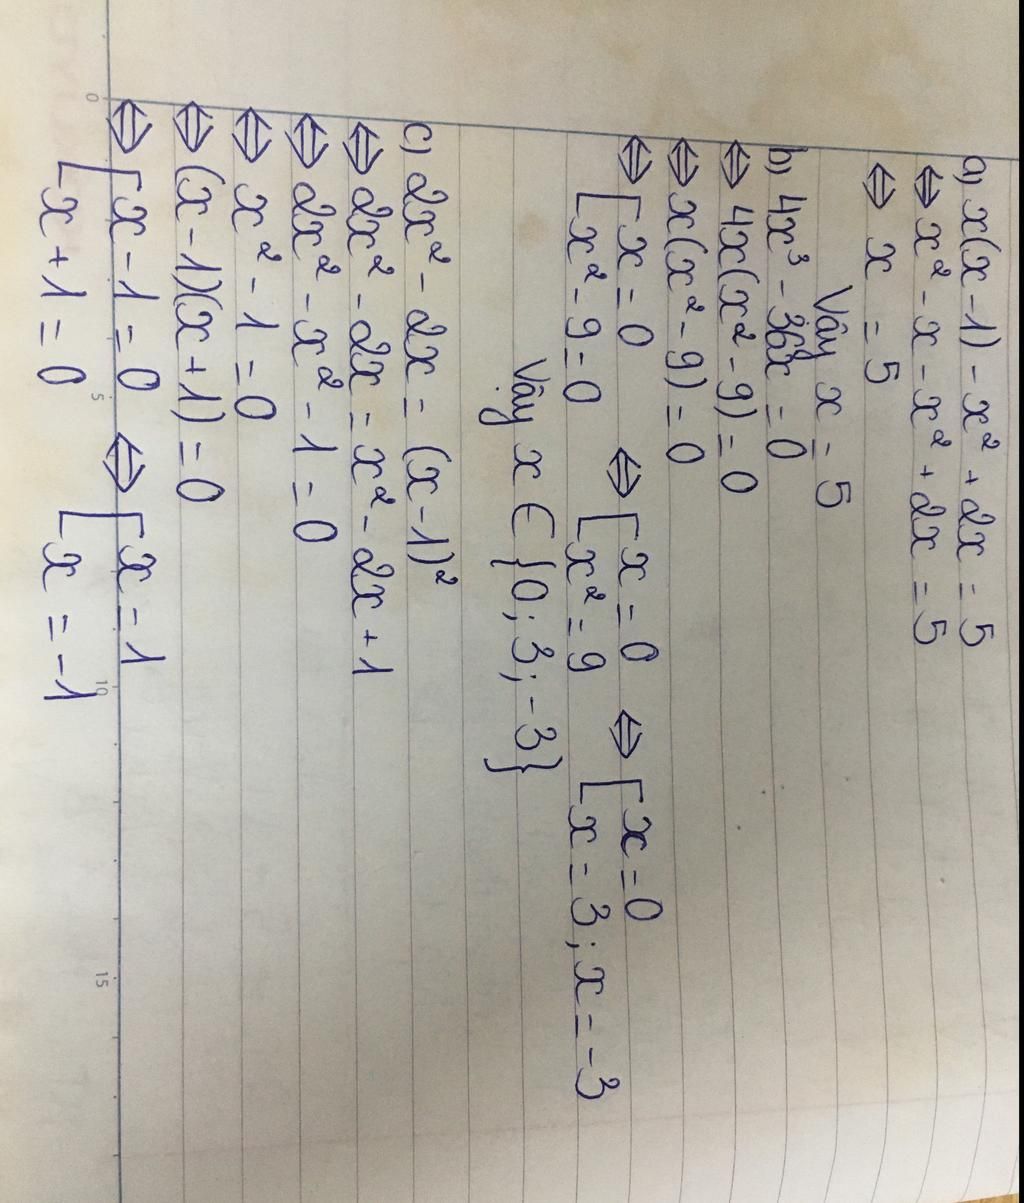 a) x(x-1) - x² + 2x = 5
⇔ x² - x - x² + 2x = 5
⇔ x = 5
Vậy x = 5
b) 4x³ - 36x = 0
⇔ 4x(x² - 9) = 0
⇔ x(x² - 9) = 0
⇔ [x = 0 ⇔ [x = 0 ⇔ [x = 0
[x² - 9 = 0 [x² = 9 [x = 3; x = -3
Vậy x ∈ {0; 3; -3}
c) 2x² - 2x = (x-1)²
⇔ 2x² - 2x = x² - 2x + 1
⇔ 2x² - x² - 1 = 0
⇔ x² - 1 = 0
⇔ (x-1)(x+1) = 0
⇔ [x - 1 = 0 ⇔ [x = 1
[x + 1 = 0 [x = -1
0 5 10 15